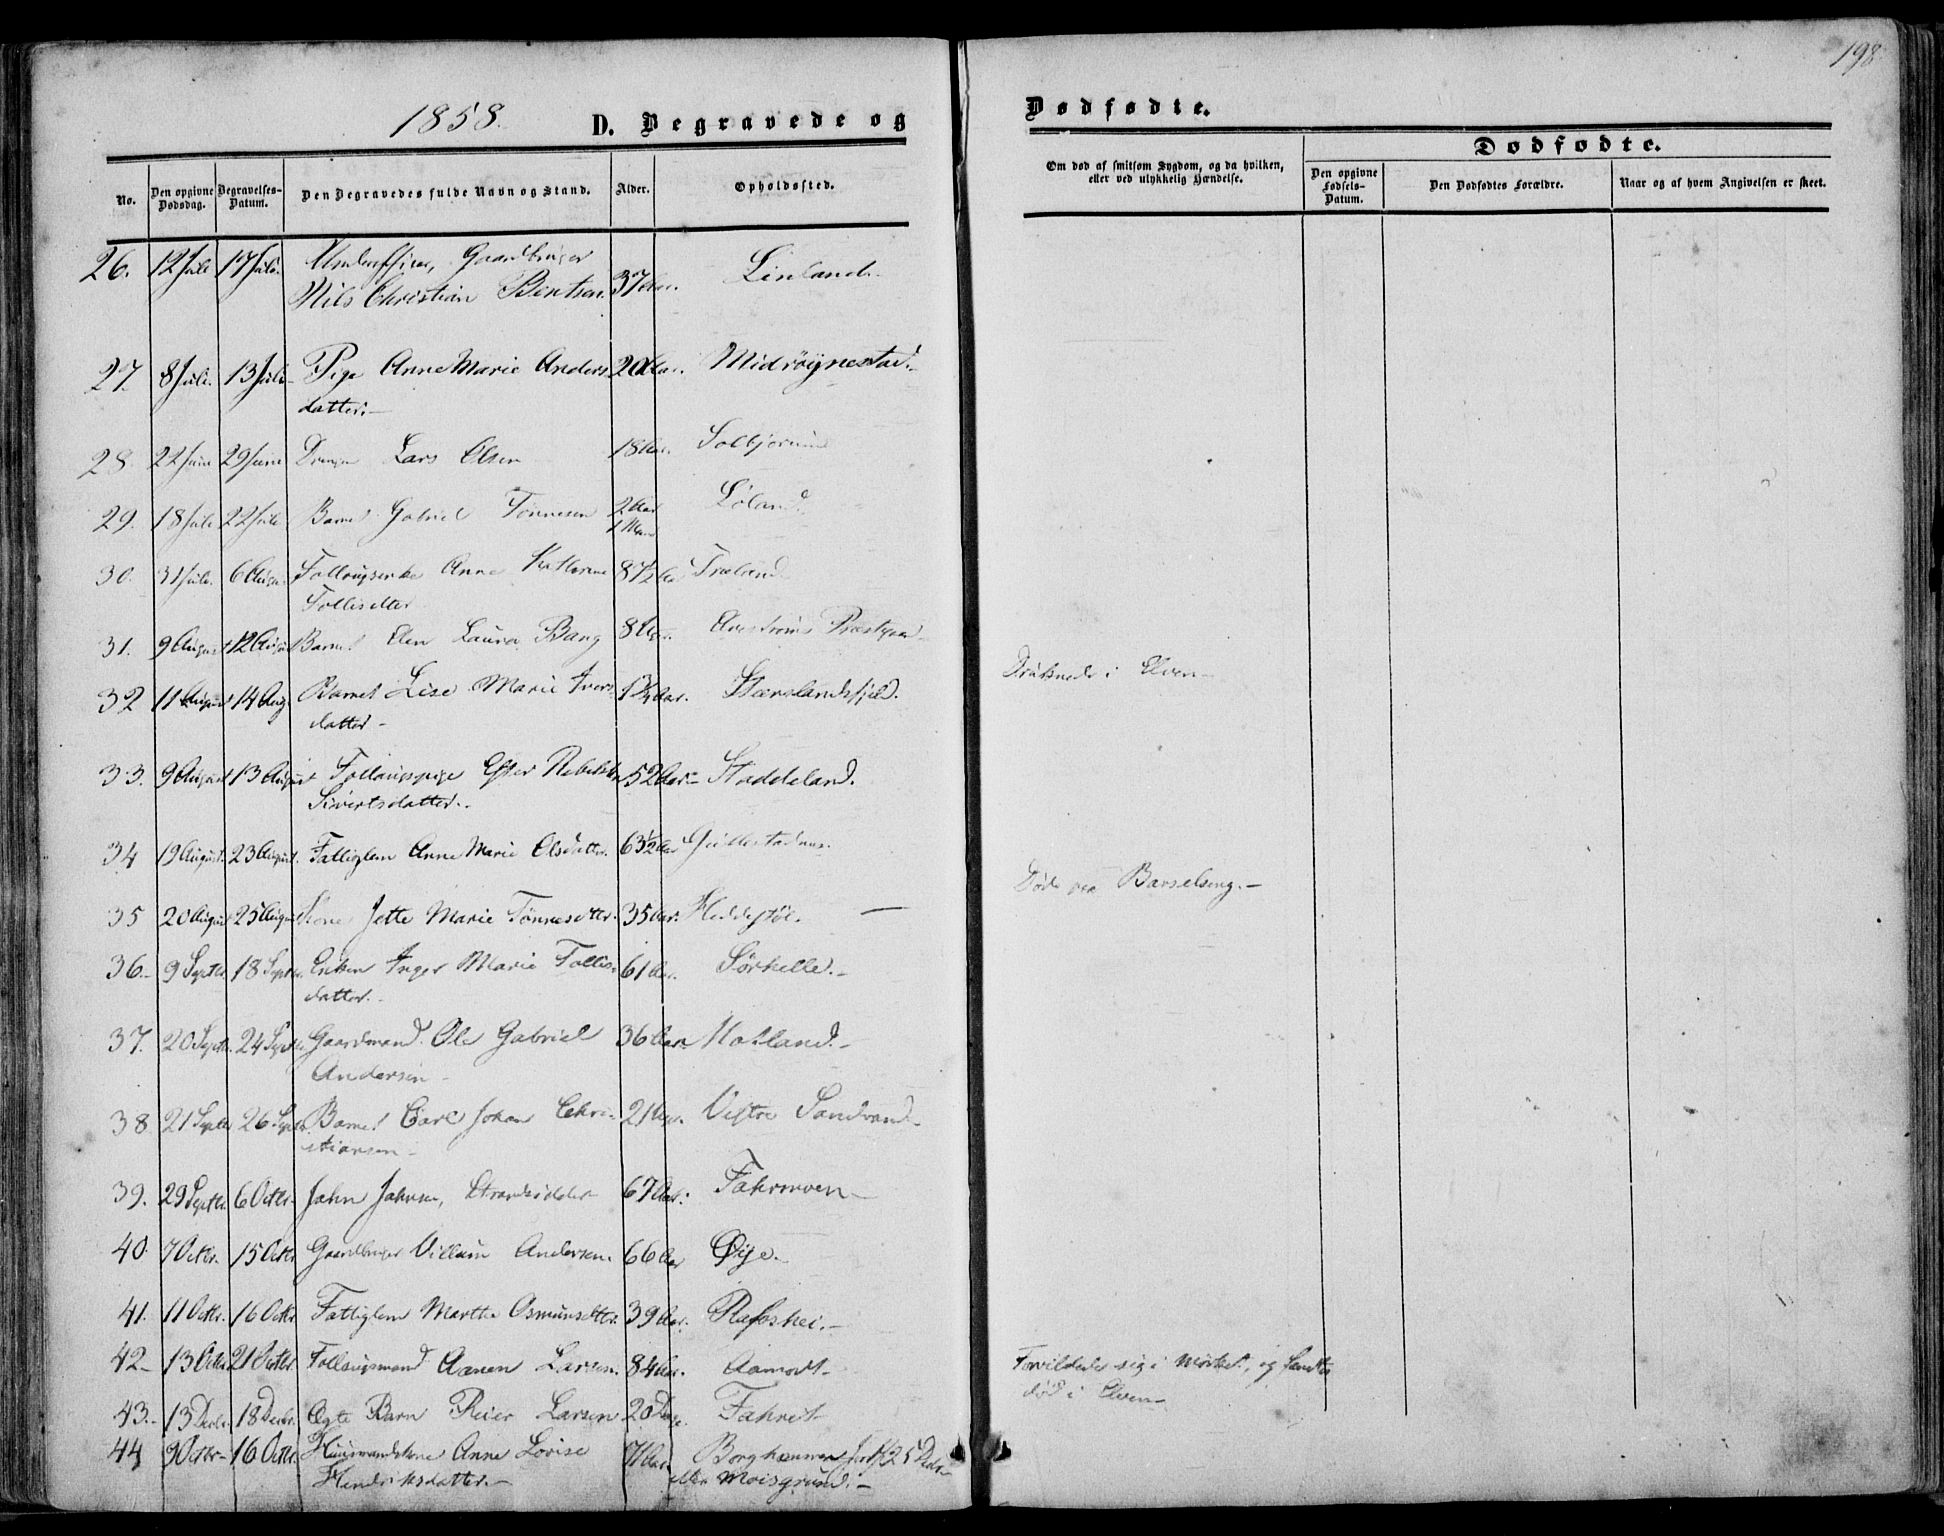 198
1858.
D. Begravede og
Dødfødte.
No.
Den opgivne Dødsdag.
Begravelses-Datum.
Den Begravedes fulde Navn og Stand.
Alder.
Opholdssted.
Om død af smitsom Sygdom, og da hvilken,
eller ved ulykkelig Hændelse.
Dødfødte.
Den opgivne Fødsels-Datum.
Den Dødfødtes Forældre.
Naar og af hvem Angivelsen er skeet.
26. 12 Juli 17 Juli. Gaardbruger
Nils Christian Bentsen. 37 Aar. Linland.
27. 8 Juli. 13 Juli Pige Anne Marie Anders- 20 Aar. Midrøynestad.
datter.
28. 22 Juni 29 Juni Dreng Lars Olsen 18 Aar.
29. 18 Juli 22 Juli Barnet Gabriel Tønnesen 2 Aar Løland.
30. 31 Juli. 6 Aug. Anne Kathrine 87½ Aar Træland
31. 9 August 12 August Barnet Elen Laura Bang 8 Aar.
32 11 August 14 Aug. Barnet Lise Marie Ivers- 1¾ Aar.
datter
Druknede i Elven
33. 9 August 13 August Follaugspige Ester Rebekka 52 Aar Staddeland.
Sivertsdatter.
34 19 August. 23 August. Fattiglem Anne Marie Olsdatter. 63½ Aar
35 20 August 25 August Kone Jette Marie Tønnesdtter. 35 Aar. Heddestøl.
Døde paa Barselseng.
36. 9 Septbr. 18 Septbr. Enken Inger Marie Tollis- 61 Aar. Sørhelle.
datter.
37. 20 Septbr. 24 Septbr. Gaardmand Ole Gabriel 36 Aar. Hatland.
Andersen
38. 21 Septbr 26 Septbr Barnet Carl Johan Chri- 21 Uger. Vestre Sandvand
stiansen
39. 29 Septbr. 6 Octbr. John Johnsen, Strandsidder 67 Aar. Fahrmoen
40. 7 Octbr. 15 Octbr Gaardbruger Villum Andersen. 66 Aar Øye.
41. 11 Octbr. 16 Octbr. Fattiglem Marthe Osmunsdtter. 39 Aar. Rafoshei.
42 13 Octbr 21 Octbr. Follaugsmand Aanen Larsen. 84 Aar. Aamodt
Forvildede sig i Mørket, og fandtes
død i Elven
43. 13 Decbr. 18 Decbr. Ægte Barn Reier Larsen 20 Dage. Fahret
44 9 Octbr 16 Octbr. Huusmandskone Anne Lovise 71 Aar
Hendriksdatter. eller Moisgrund.